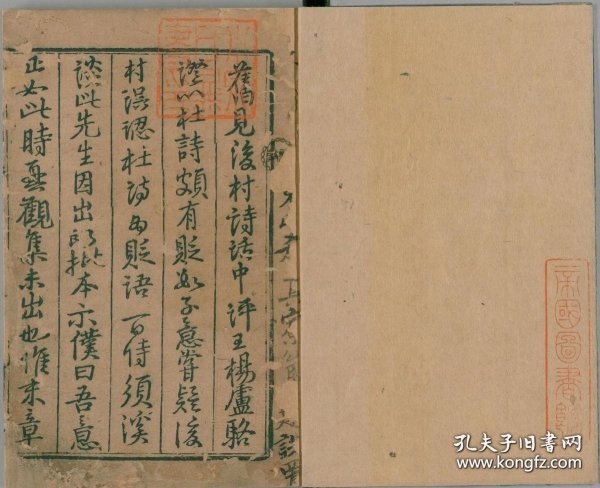 舊見後村詩話中評王楊盧駱
證以杜詩頗有貶始子意嘗疑後
村誤認杜詩為貶語一日侍須溪
談此先生因出所批本示僕曰吾意
正如此時興觀集未出也惟末章
帝國圖書館
孔夫子旧书网
www.kongfz.com